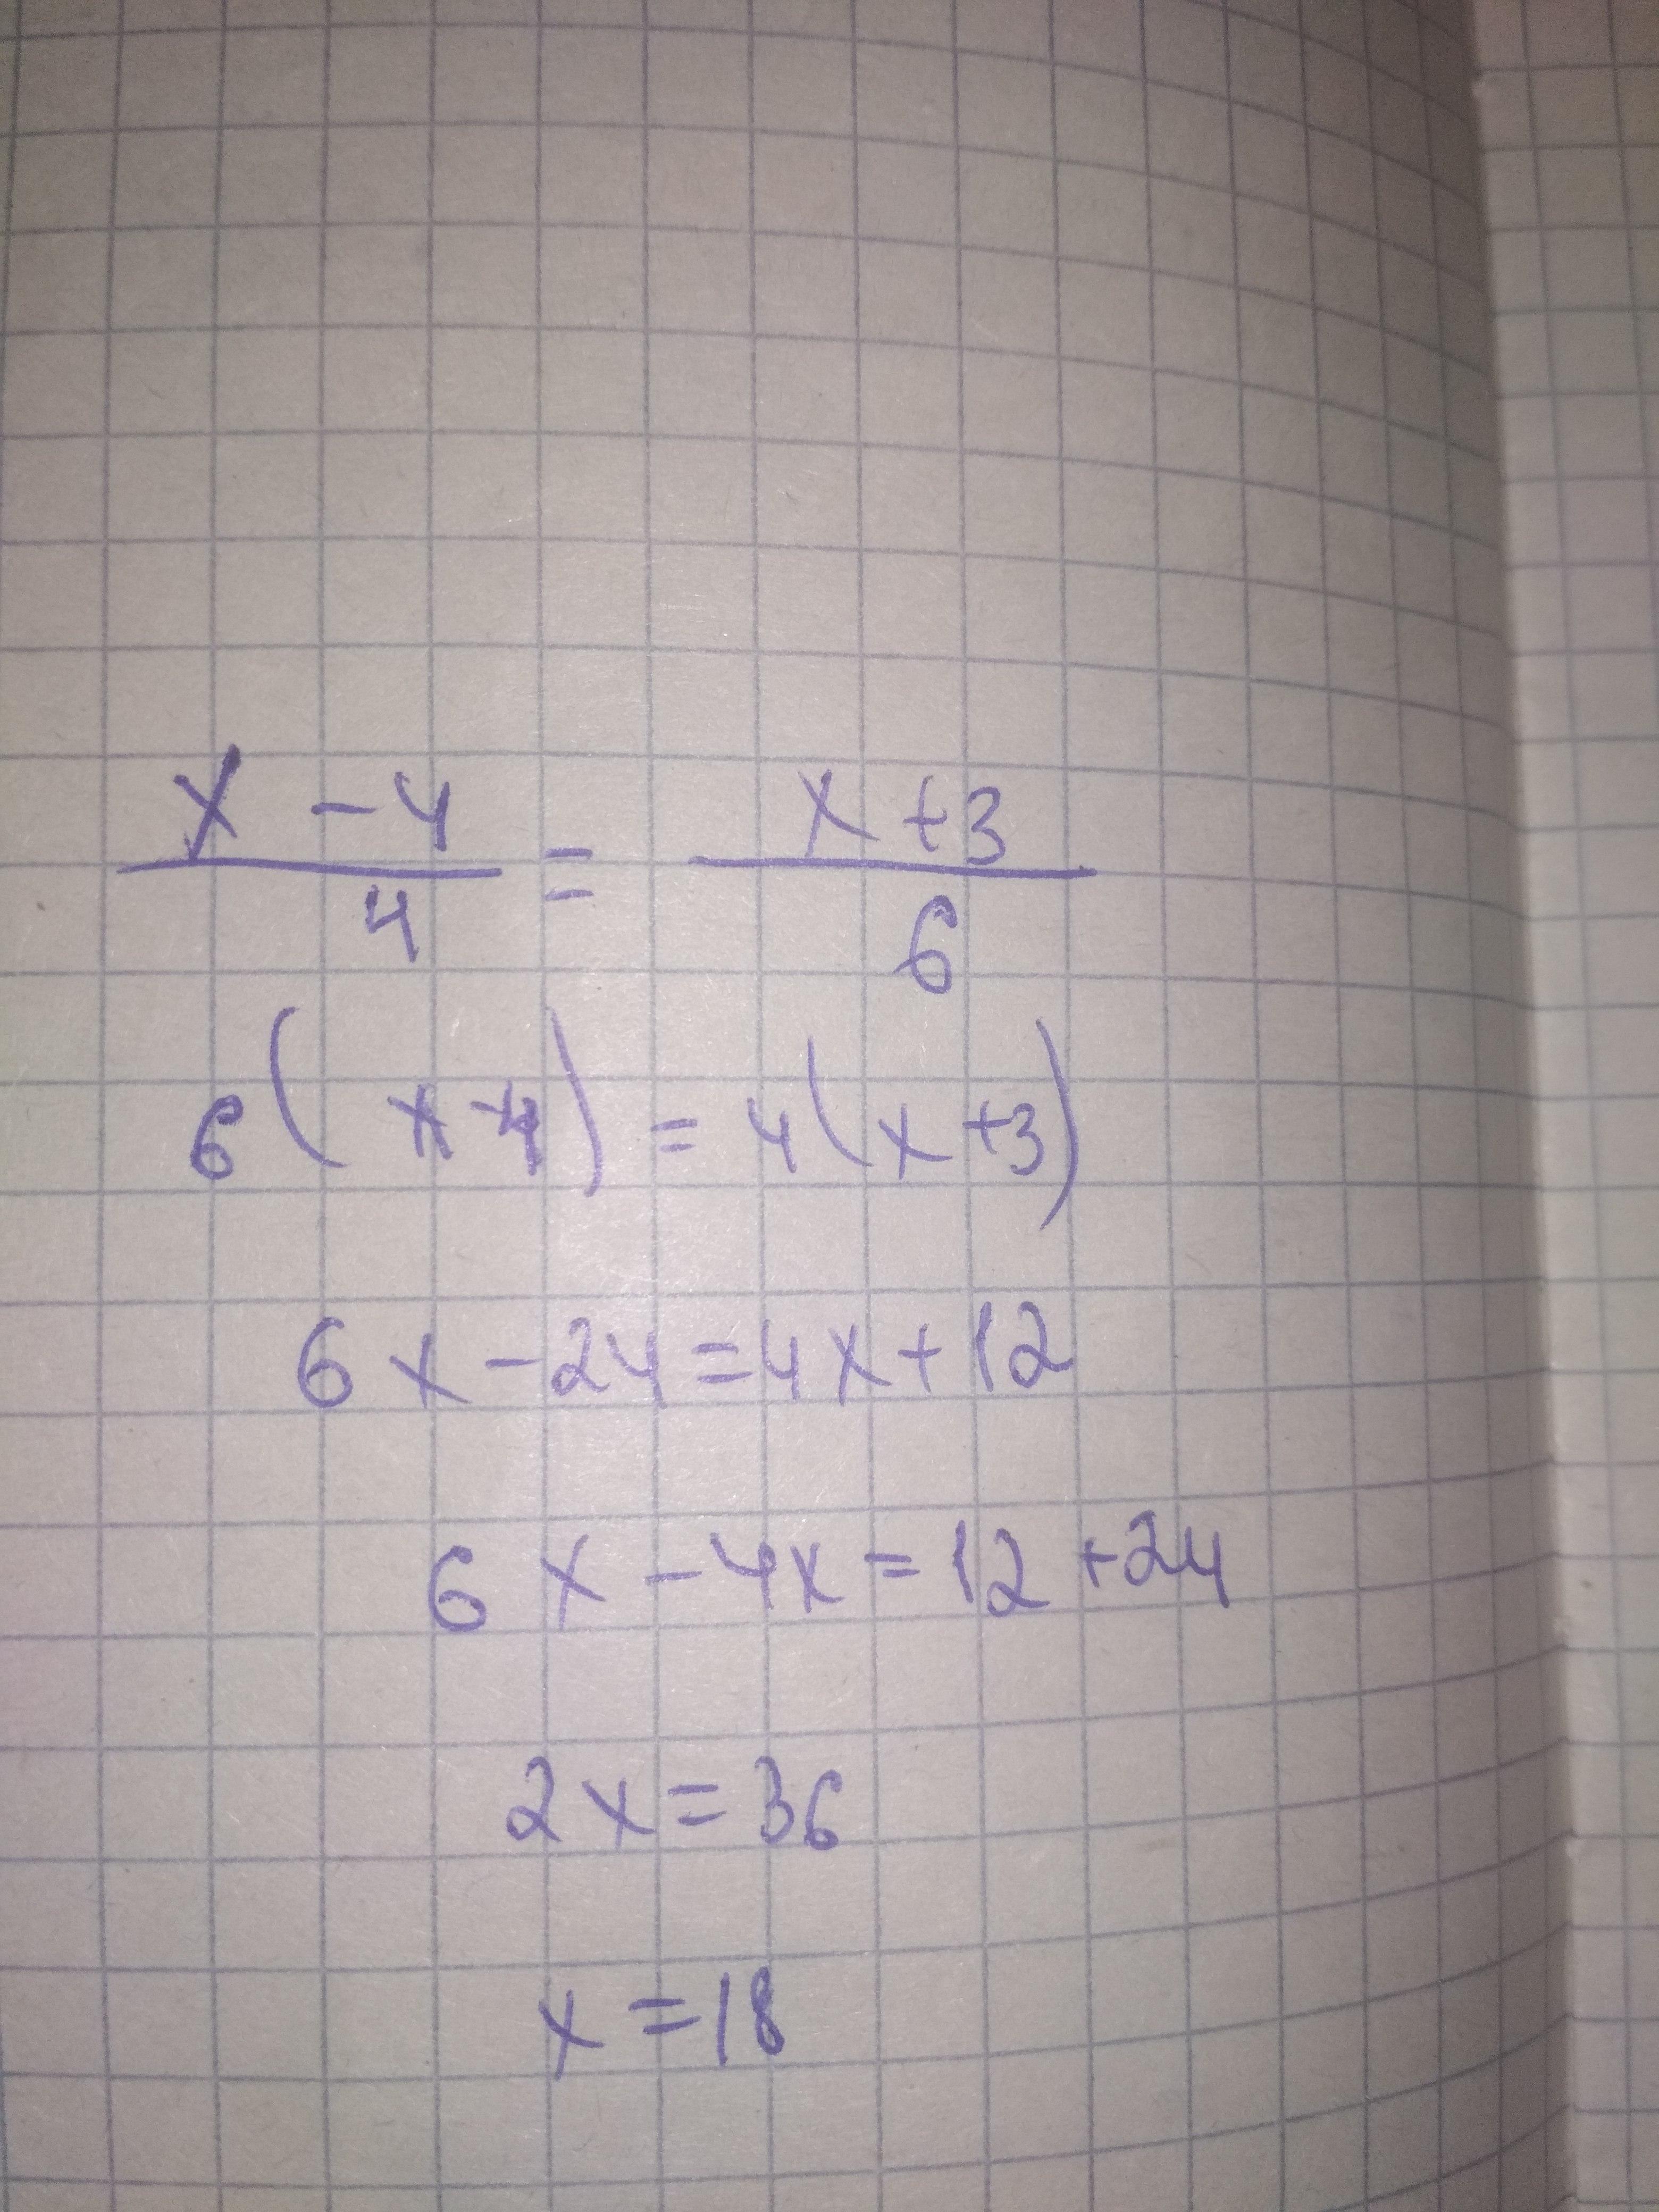 x - 4 / 4 = x + 3 / 6
6(x - 4) = 4(x + 3)
6x - 24 = 4x + 12
6x - 4x = 12 + 24
2x = 36
x = 18